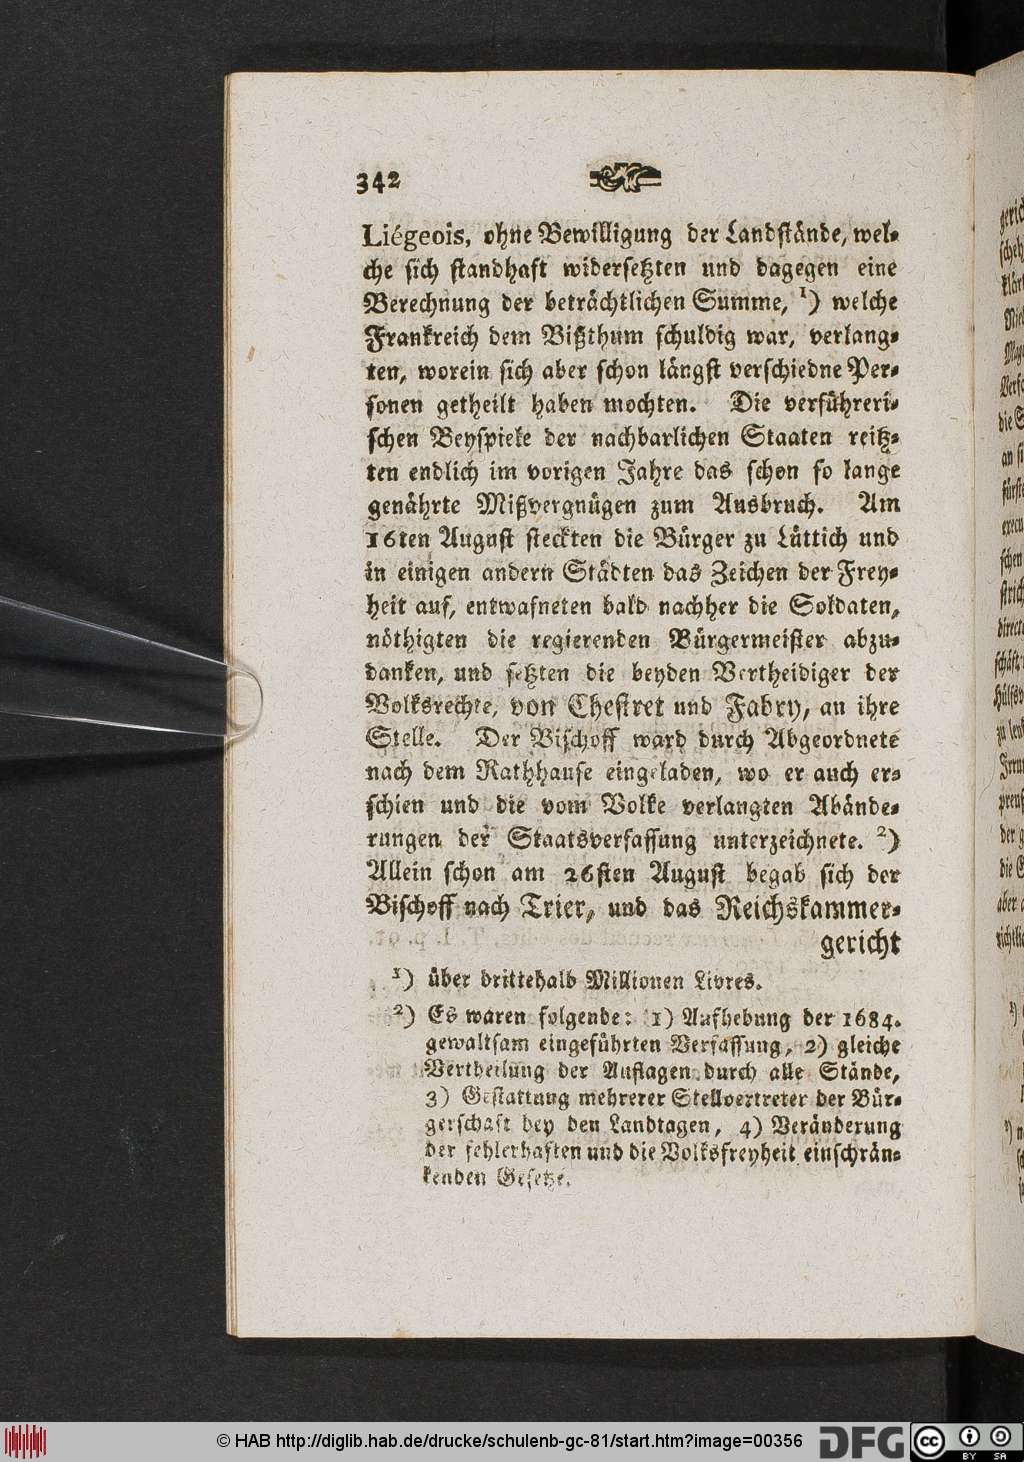 342
Liégeois, ohne Bewilligung der Landstände, wel-
che sich standhaft widersetzten und dagegen eine
Berechnung der beträchtlichen Summe, 1) welche
Frankreich dem Bißthum schuldig war, verlang-
ten, worein sich aber schon längst verschiedne Per-
sonen getheilt haben mochten. Die verführeri-
schen Beyspiele der nachbarlichen Staaten reitz-
ten endlich im vorigen Jahre das schon so lange
genährte Mißvergnügen zum Ausbruch. Am
16ten August steckten die Bürger zu Lüttich und
in einigen andern Städten das Zeichen der Frey-
heit auf, entwafneten bald nachher die Soldaten,
nöthigten die regierenden Bürgermeister abzu-
danken, und setzten die beyden Vertheidiger der
Volksrechte, von Chestret und Fabry, an ihre
Stelle. Der Bischoff ward durch Abgeordnete
nach dem Rathhause eingeladen, wo er auch er-
schien und die vom Volke verlangten Abände-
rungen der Staatsverfassung unterzeichnete. 2)
Allein schon am 26sten August begab sich der
Bischoff nach Trier, und das Reichskammer-
gericht
1) über drittehalb Millionen Livres.
2) Es waren folgende: 1) Aufhebung der 1684.
gewaltsam eingeführten Verfassung, 2) gleiche
Vertheilung der Auflagen durch alle Stände,
3) Gestattung mehrerer Stellvertreter der Bür-
gerschaft bey den Landtagen, 4) Veränderung
der fehlerhaften und die Volksfreyheit einschrän-
kenden Gesetze.
© HAB http://diglib.hab.de/drucke/schulenb-gc-81/start.htm?image=00356
DFG
cc
BY SA